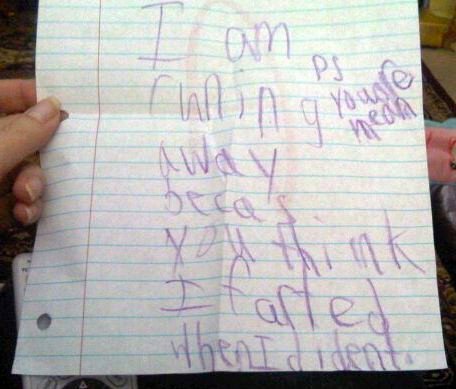 I am
runing
ps
you're
mean
away
becas
you think
I farted
when I dident.